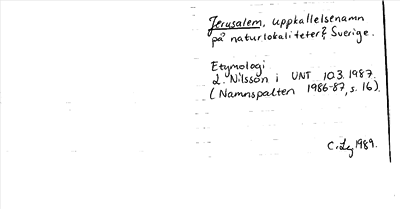 Jerusalem, uppkallelsenamn
på naturlokaliteter i Sverige.
Etymologi
L. Nilsson i UNT 10.3.1987.
(Namnspalten 1986-87, s. 16).
C. Lg 1989.